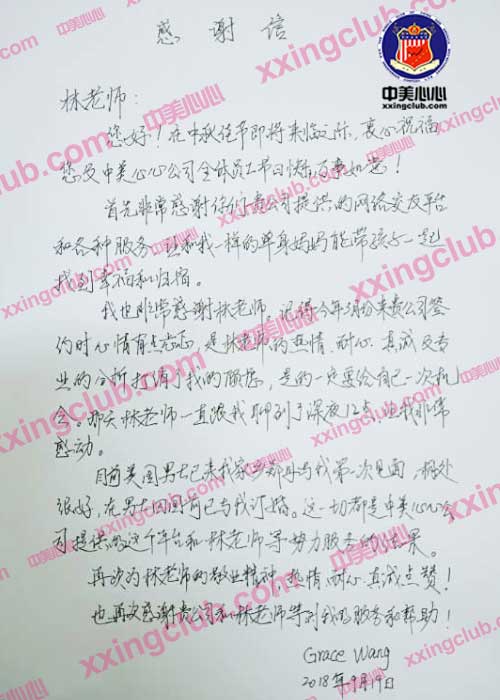 感谢信
中美心心
xxingclub.com
林老师：
您好！在中秋佳节即将来临之际，衷心祝福
您及中美心心公司全体员工节日快乐，万事如意！
首先非常感谢你们贵公司提供的网络交友平台
和各种服务，让和我一样的单身妈妈能带孩子一起
找到幸福和归宿。
我也非常感谢林老师。记得今年3月份来贵公司签
约时心情有点忐忑，是林老师的热情、耐心、真诚及专
业的分析打消了我的顾虑，是的一定要给自己一次机
会。那天林老师一直跟我聊到了深夜12点，让我非常
感动。
目前美国男士已来我家乡郑州与我第一次见面，相处
很好，在男士回国前已与我订婚。这一切都是中美心心公
司提供的这个平台和林老师等努力服务的结果。
再次为林老师的敬业精神，热情、耐心、真诚点赞！
也再次感谢贵公司和林老师等对我的服务和帮助！
Grace Wang
2018年9月19日